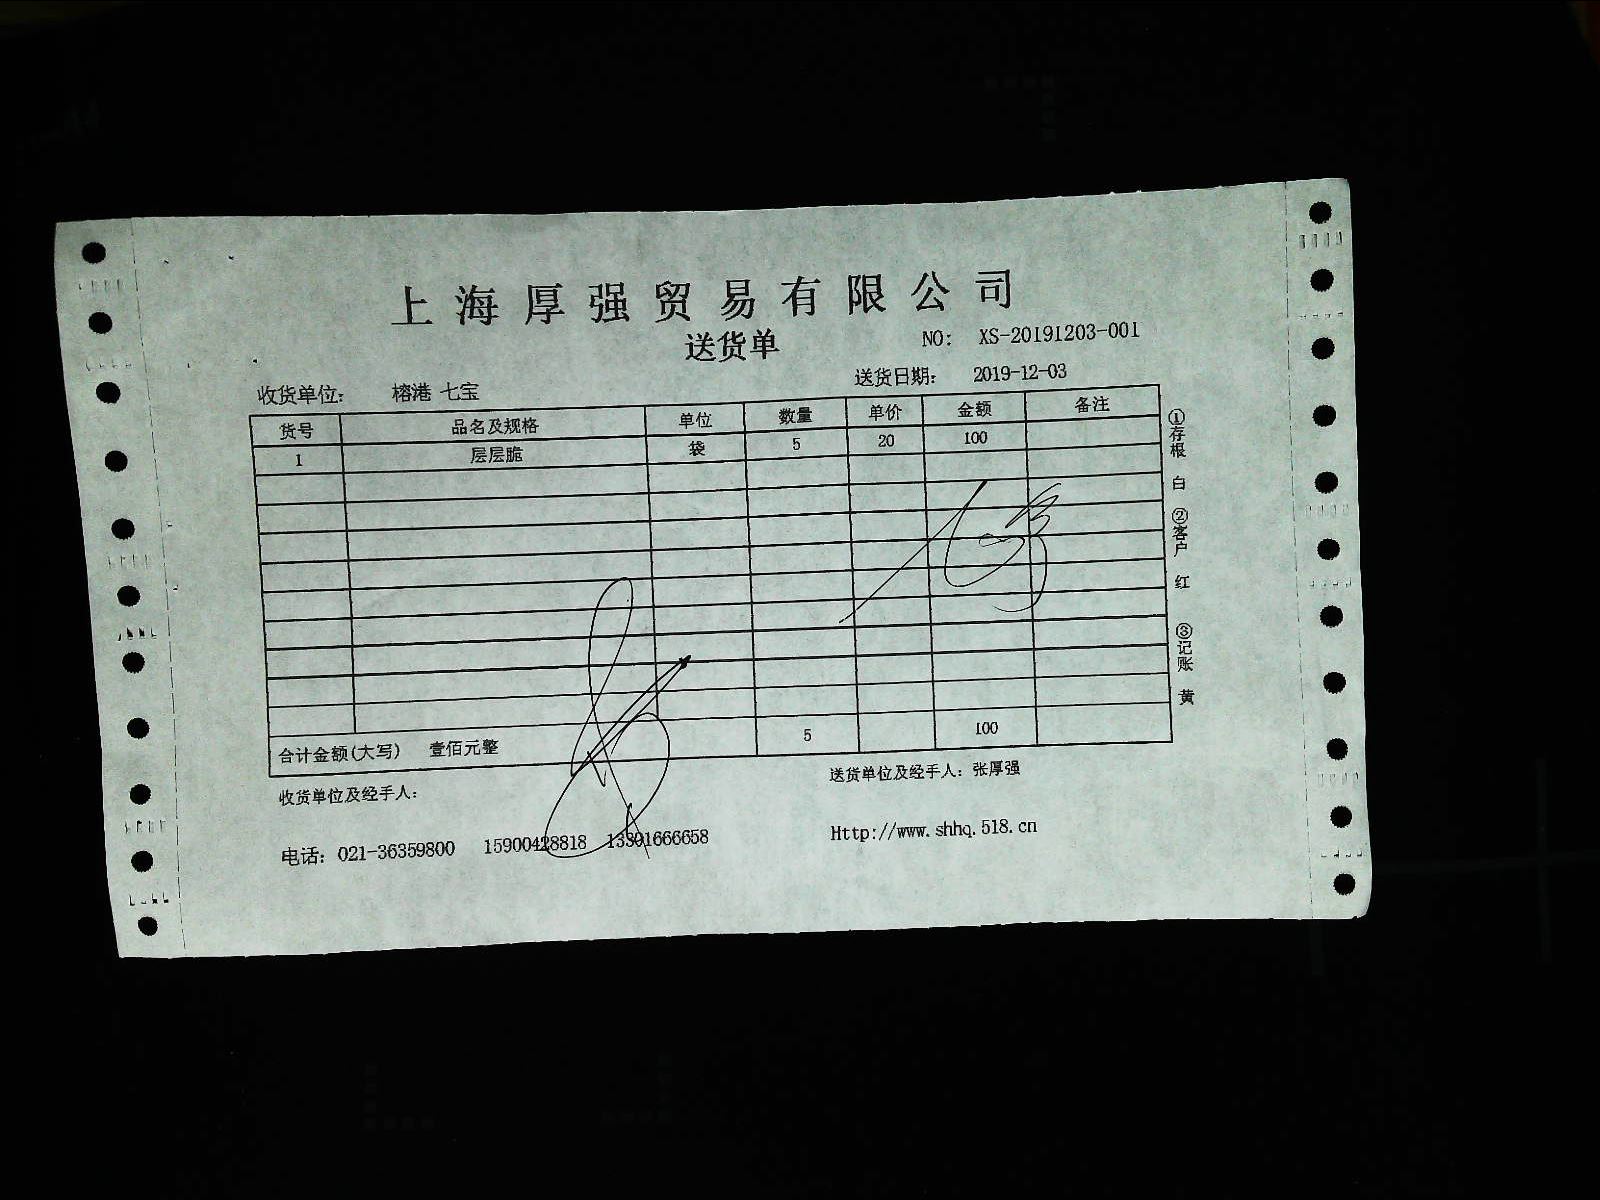 上海厚强贸易有限公司
送货单
NO: XS-20191203-001
收货单位: 榕港 七宝
送货日期: 2019-12-03
货号 品名及规格 单位 数量 单价 金额 备注
1 层层脆 袋 5 20 100
合计金额(大写) 壹佰元整 5 100
收货单位及经手人:
送货单位及经手人: 张厚强
电话: 021-36359800 15900428818 13301666658
Http://www.shhq.518.cn
①存根 白 ②客户 红 ③记账 黄